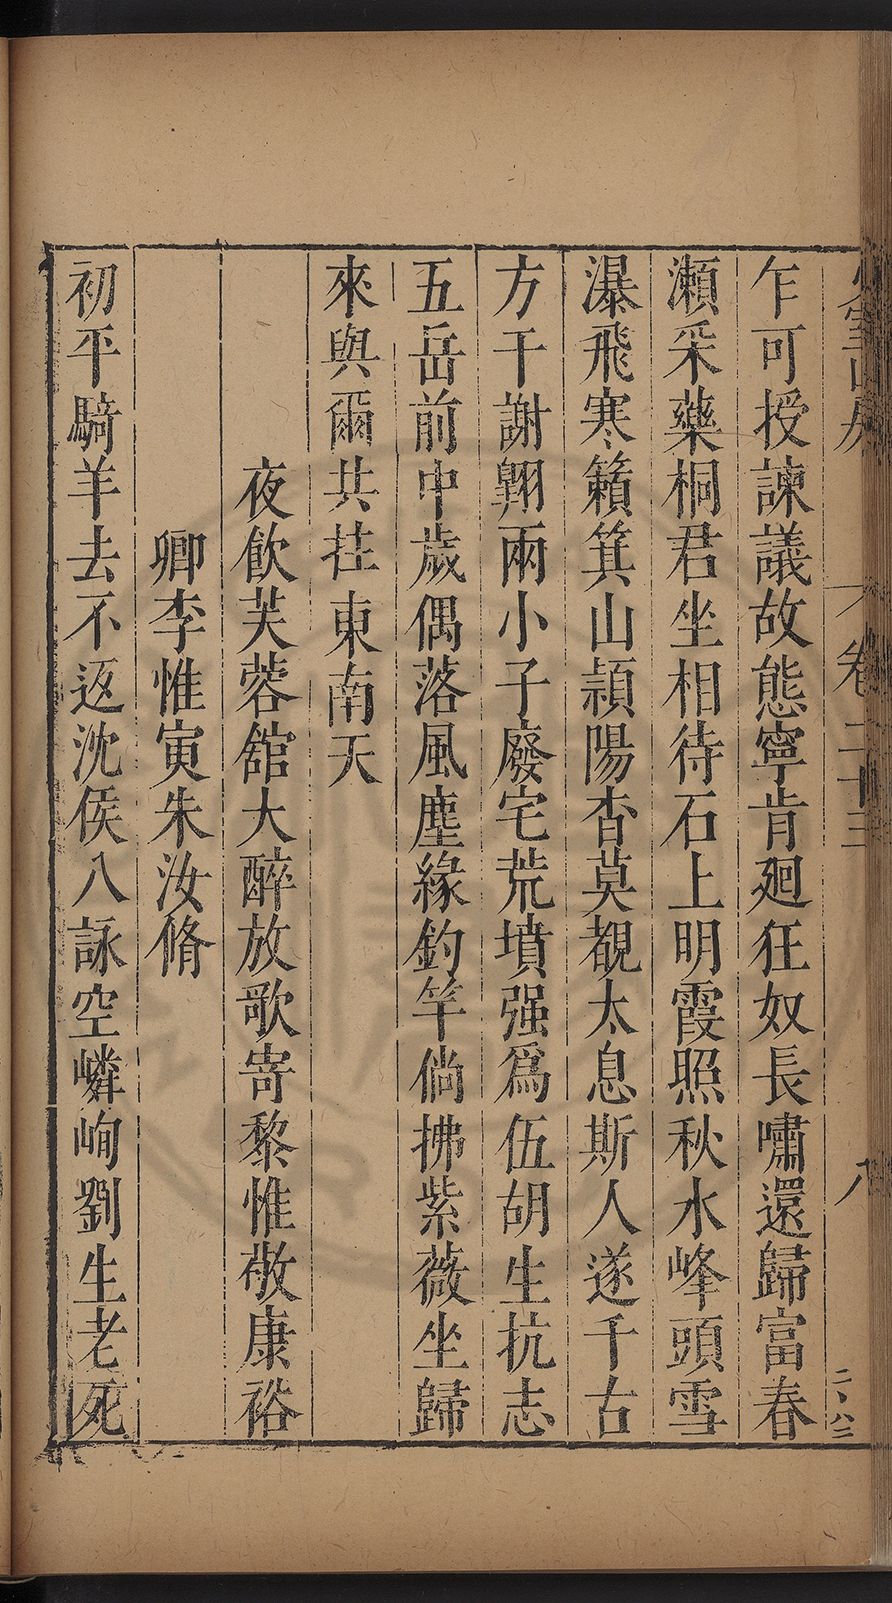 少室山房
卷二十三
八
二、八三
乍可授諫議故態寧肯廻狂奴長嘯還歸富春
瀨釆藥桐君坐相待石上明霞照秋水峰頭雪
瀑飛寒籟箕山潁陽杳莫覩太息斯人遂千古
方干謝翺兩小子廢宅荒墳强爲伍胡生抗志
五岳前中歲偶落風塵緣釣竿倘拂紫薇坐歸
來與爾共拄東南天
夜飲芙蓉舘大醉放歌寄黎惟敬康裕
卿李惟寅朱汝脩
初平騎羊去不返沈侯八詠空嶙峋劉生老死